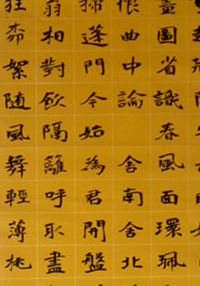 畫圖省識春風面環珮
恨曲中論舍南舍北
掃蓬門今始為君開盤
翁相對飲隔籬呼取盡
狂柳絮随風舞輕薄桃